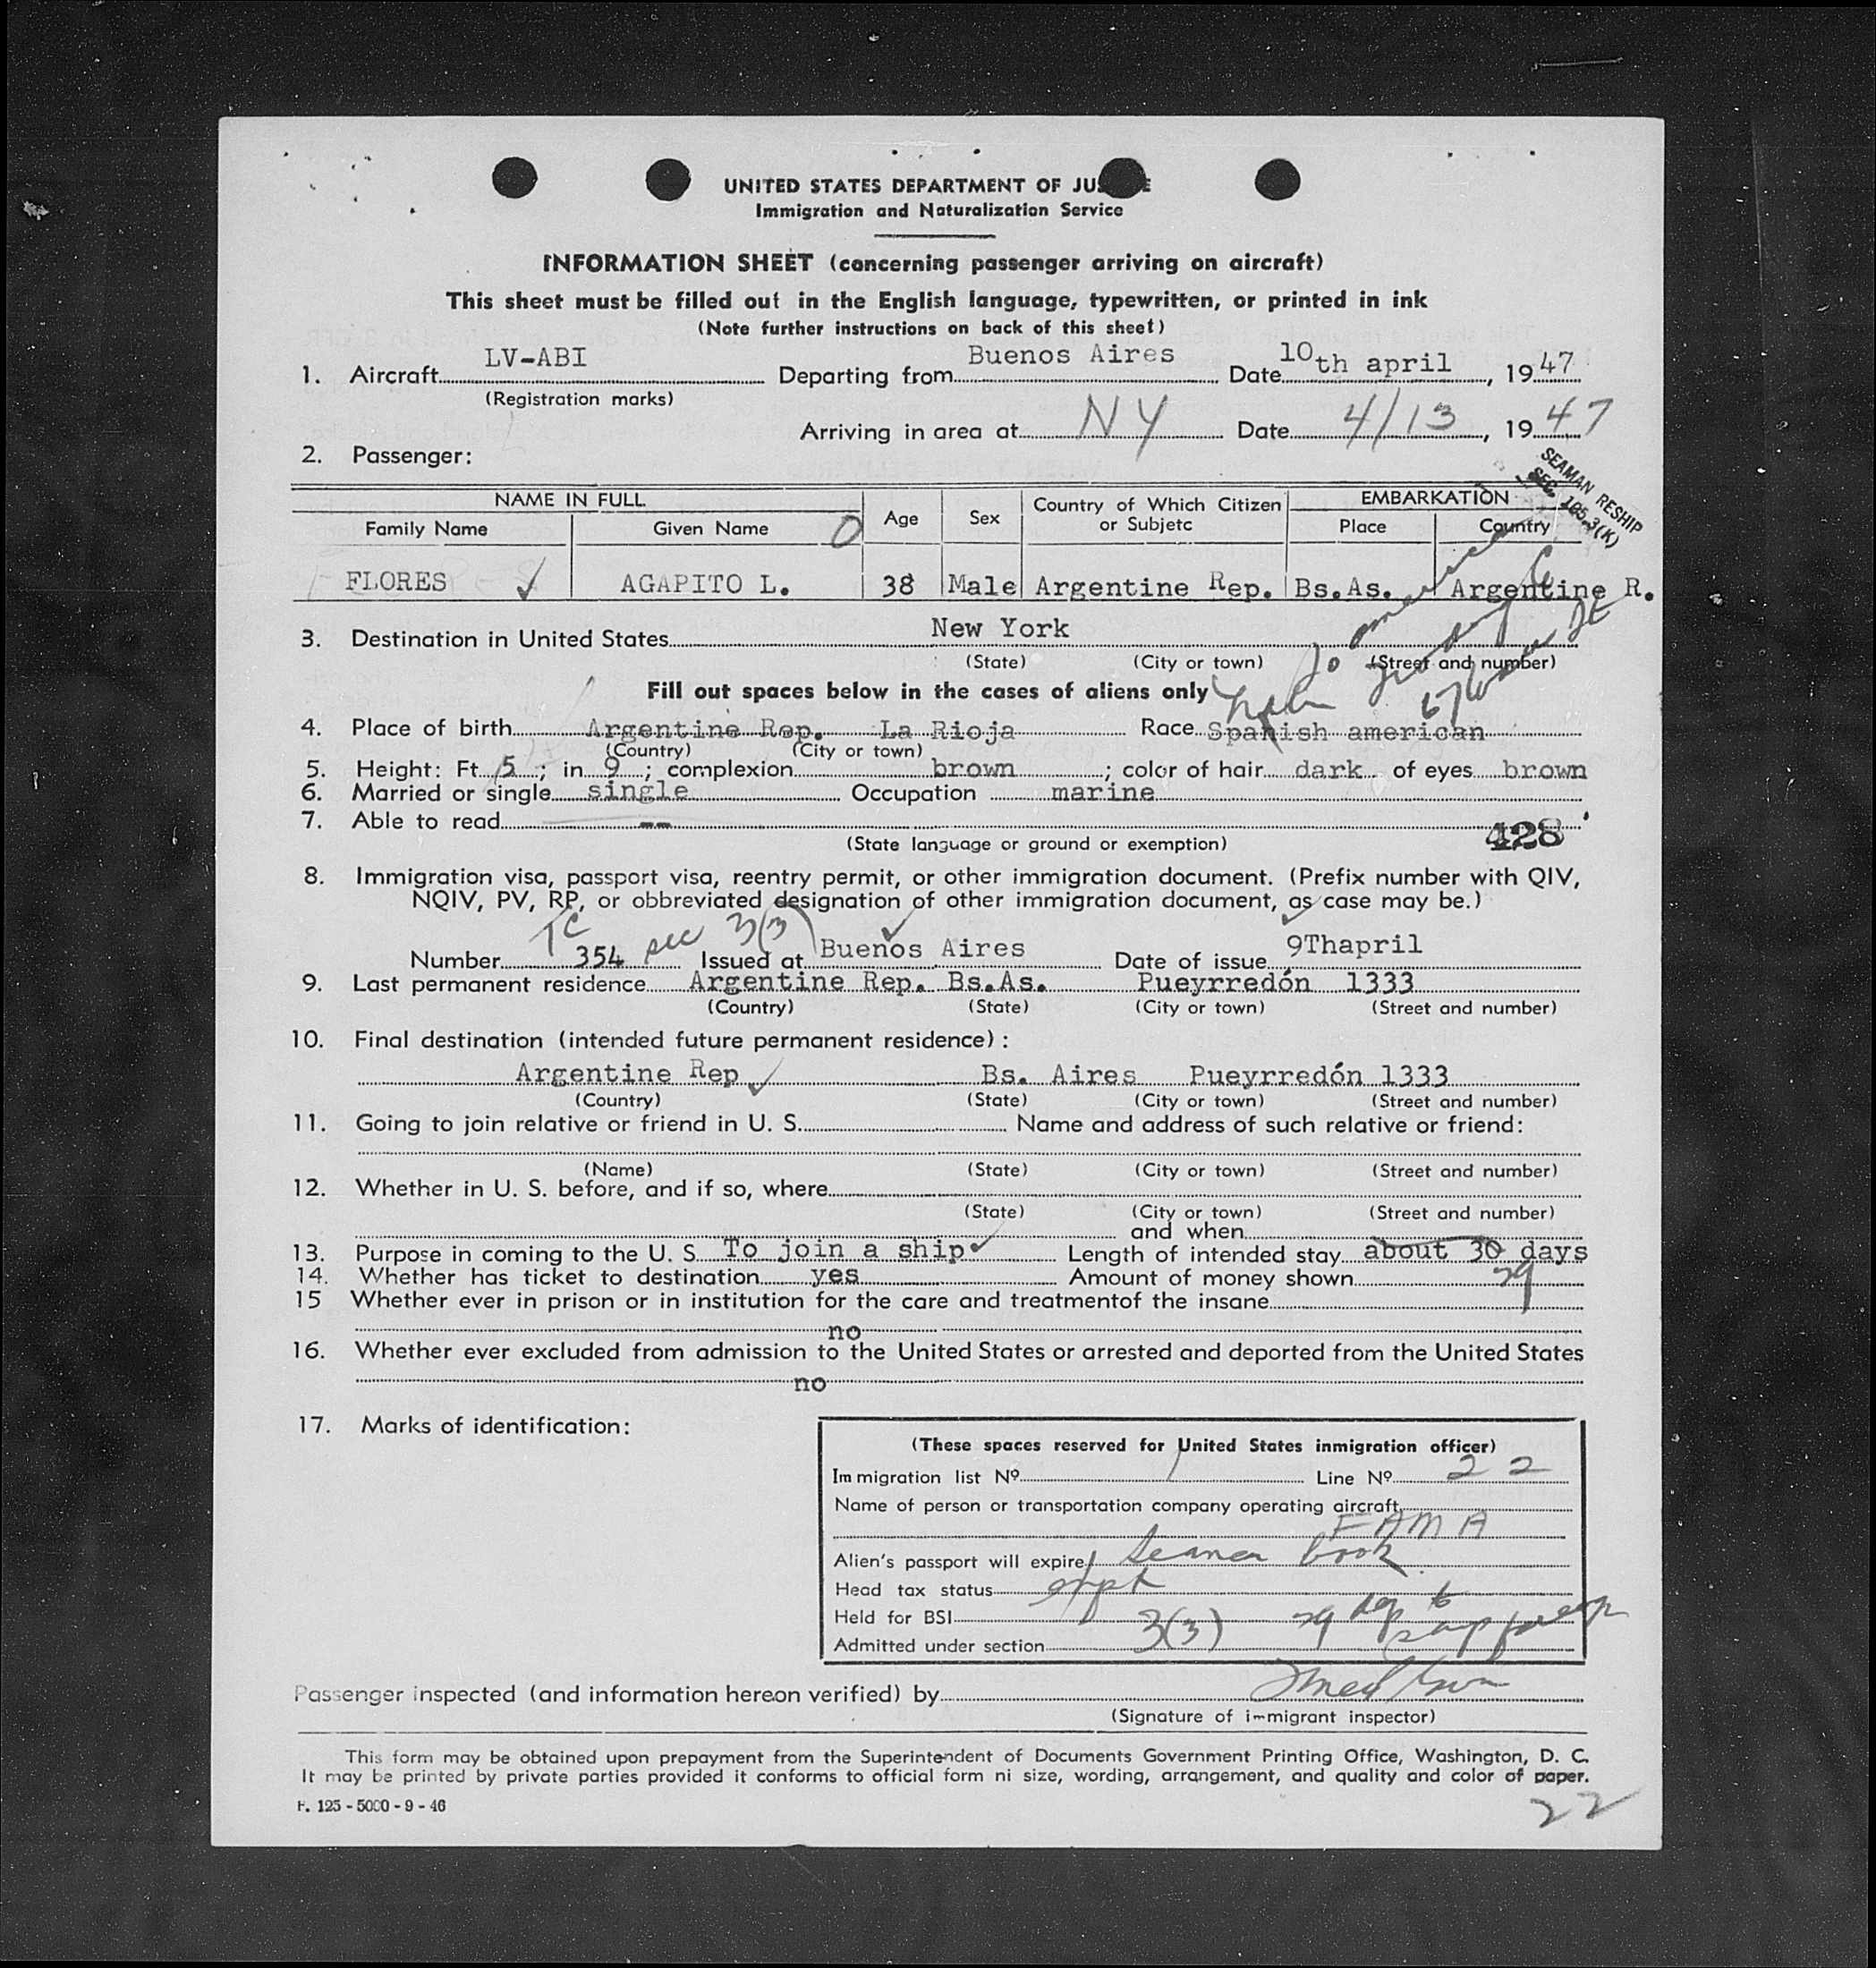 UNITED STATES DEPARTMENT OF JUSTICE
Immigration and Naturalization Service
INFORMATION SHEET (concerning passenger arriving on aircraft)
This sheet must be filled out in the English language, typewritten, or printed in ink
(Note further instructions on back of this sheet)
1. Aircraft LV-ABI Departing from Buenos Aires Date 10th april, 1947
(Registration marks)
Arriving in area at NY Date 4/13, 1947
2. Passenger:
SEAMAN RESHIP
SEC. 105.3(K)
NAME IN FULL Age Sex Country of Which Citizen or Subjetc EMBARKATION
Family Name Given Name O Place Country
FLORES ✓ AGAPITO L. 38 Male Argentine Rep. Bs.As. Argentine R.
3. Destination in United States New York
(State) (City or town) (Street and number)
Fill out spaces below in the cases of aliens only
4. Place of birth Argentine Rep. La Rioja Race Spanish american
(Country) (City or town)
5. Height: Ft. 5; in 9; complexion brown; color of hair dark of eyes brown
6. Married or single single Occupation marine
7. Able to read --
(State language or ground or exemption) 428
8. Immigration visa, passport visa, reentry permit, or other immigration document. (Prefix number with QIV,
NQIV, PV, RP, or obbreviated designation of other immigration document, as case may be.)
TC sec 3(3)
Number 354 Issued at Buenos Aires Date of issue 9Thapril
9. Last permanent residence Argentine Rep. Bs.As. Pueyrredón 1333
(Country) (State) (City or town) (Street and number)
10. Final destination (intended future permanent residece):
Argentine Rep ✓ Bs. Aires Pueyrredón 1333
(Country) (State) (City or town) (Street and number)
11. Going to join relative or friend in U. S. Name and address of such relative or friend:
(Name) (State) (City or town) (Street and number)
12. Whether in U. S. before, and if so, where
(State) (City or town) (Street and number)
and when
13. Purpose in coming to the U. S. To join a ship ✓ Length of intended stay about 30 days
29
14. Whether has ticket to destination yes Amount of money shown
15 Whether ever in prison or in institution for the care and treatmentof the insane
no
16. Whether ever excluded from admission to the United States or arrested and deported from the United States
no
17. Marks of identification:
(These spaces reserved for United States inmigration officer)
Immigration list Nº 1 Line Nº 22
Name of person or transportation company operating aircraft
FAMA
Alien's passport will expire book
Head tax status
Held for BSI
Admitted under section 3(3) 29
Passenger inspected (and information hereon verified) by
(Signature of immigrant inspector)
This form may be obtained upon prepayment from the Superintendent of Documents Government Printing Office, Washington, D. C.
It may be printed by private parties provided it conforms to official form ni size, wording, arrangement, and quality and color of paper.
F. 125 - 5000 - 9 - 46
22